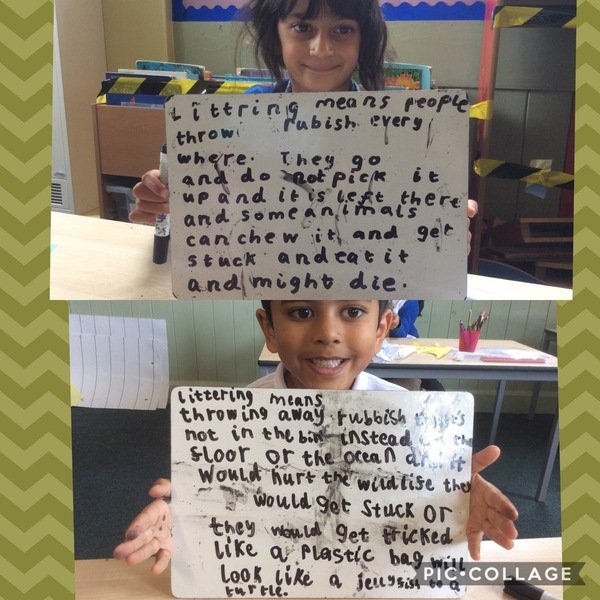 Littring means people
throw rubish every
where. They go
and do not pick it
up and it is left there
and some animals
can chew it and get
stuck and eat it
and might die.
littering means
throwing away rubbish
not in the bin instead the
floor or the ocean
would hurt the wildlife they
would get stuck or
they would get tricked
like a plastic bag will
look like a jellyfish to a
turtle.
PIC•COLLAGE